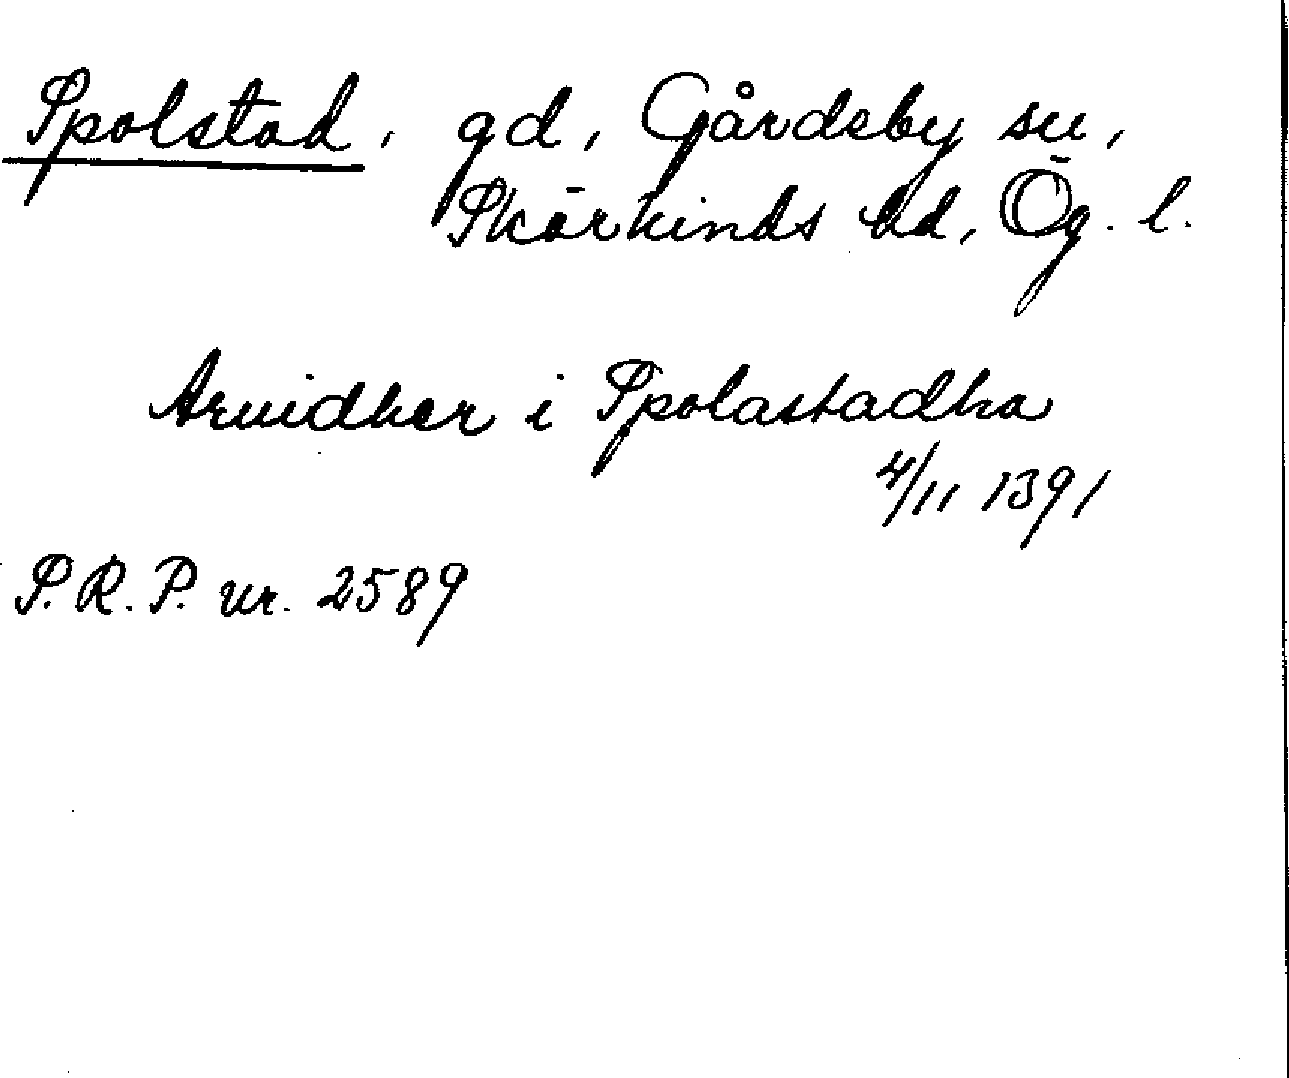 Spolstad, gd, Gårdeby sn,
Skärkinds hd, Ög. l.
Arvidher i Spolastadha
4/11 1391
S.R.P. nr. 2589